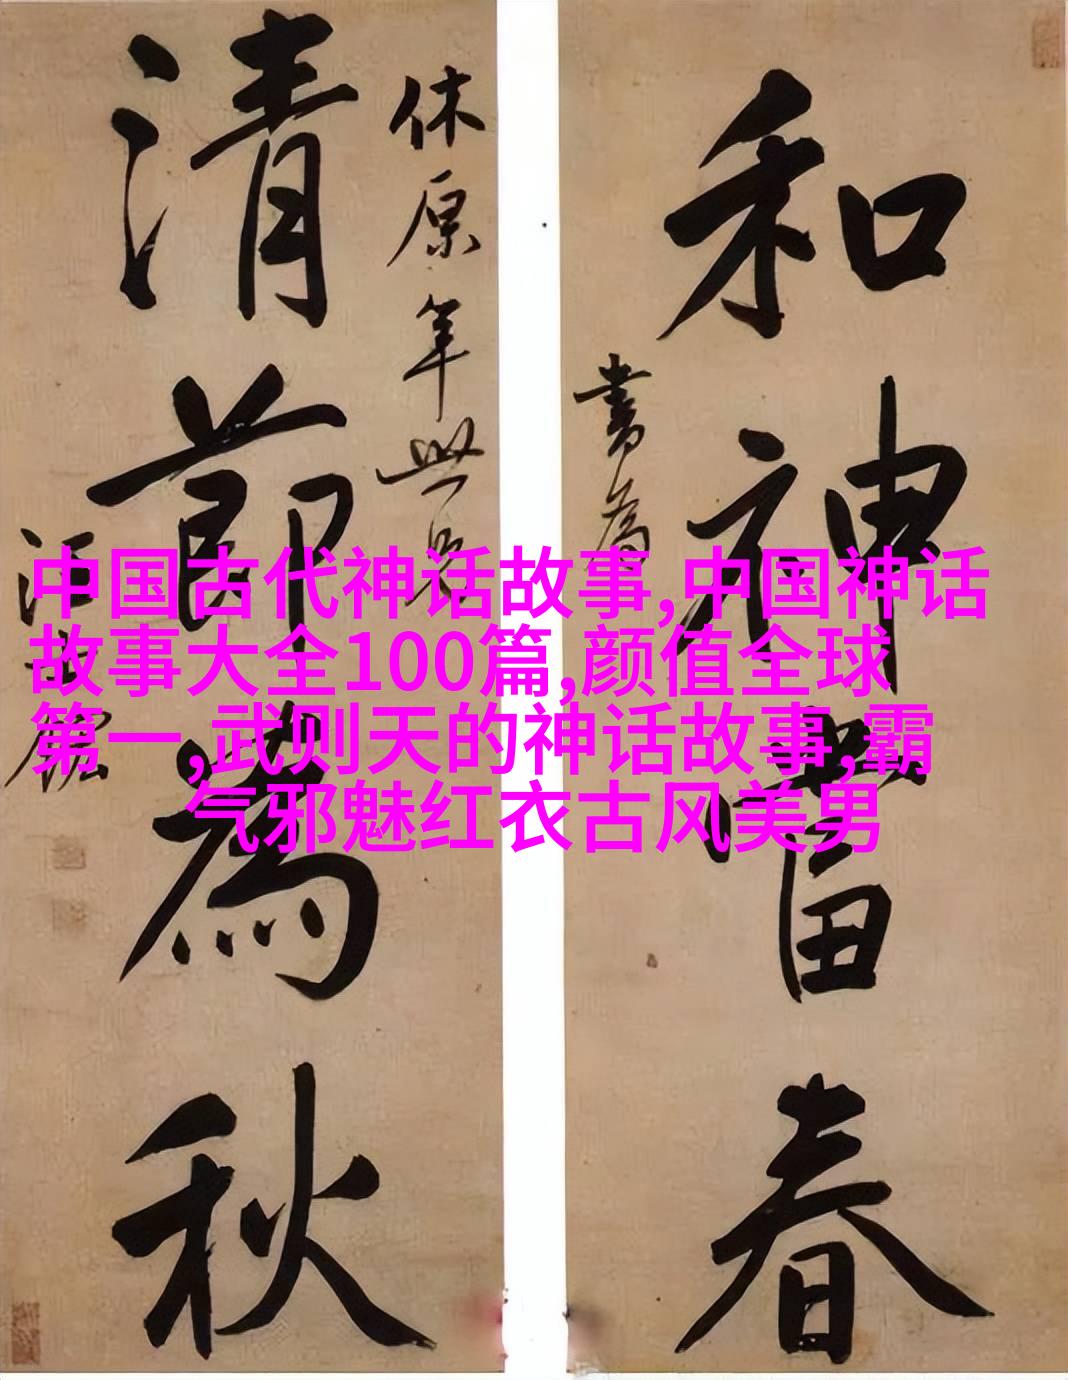 和神當春
書為
休原年世兄
清節為秋
汪士鋐
中国古代神话故事,中国神话
故事大全100篇,颜值全球
第一,武则天的神话故事,霸
气邪魅红衣古风美男